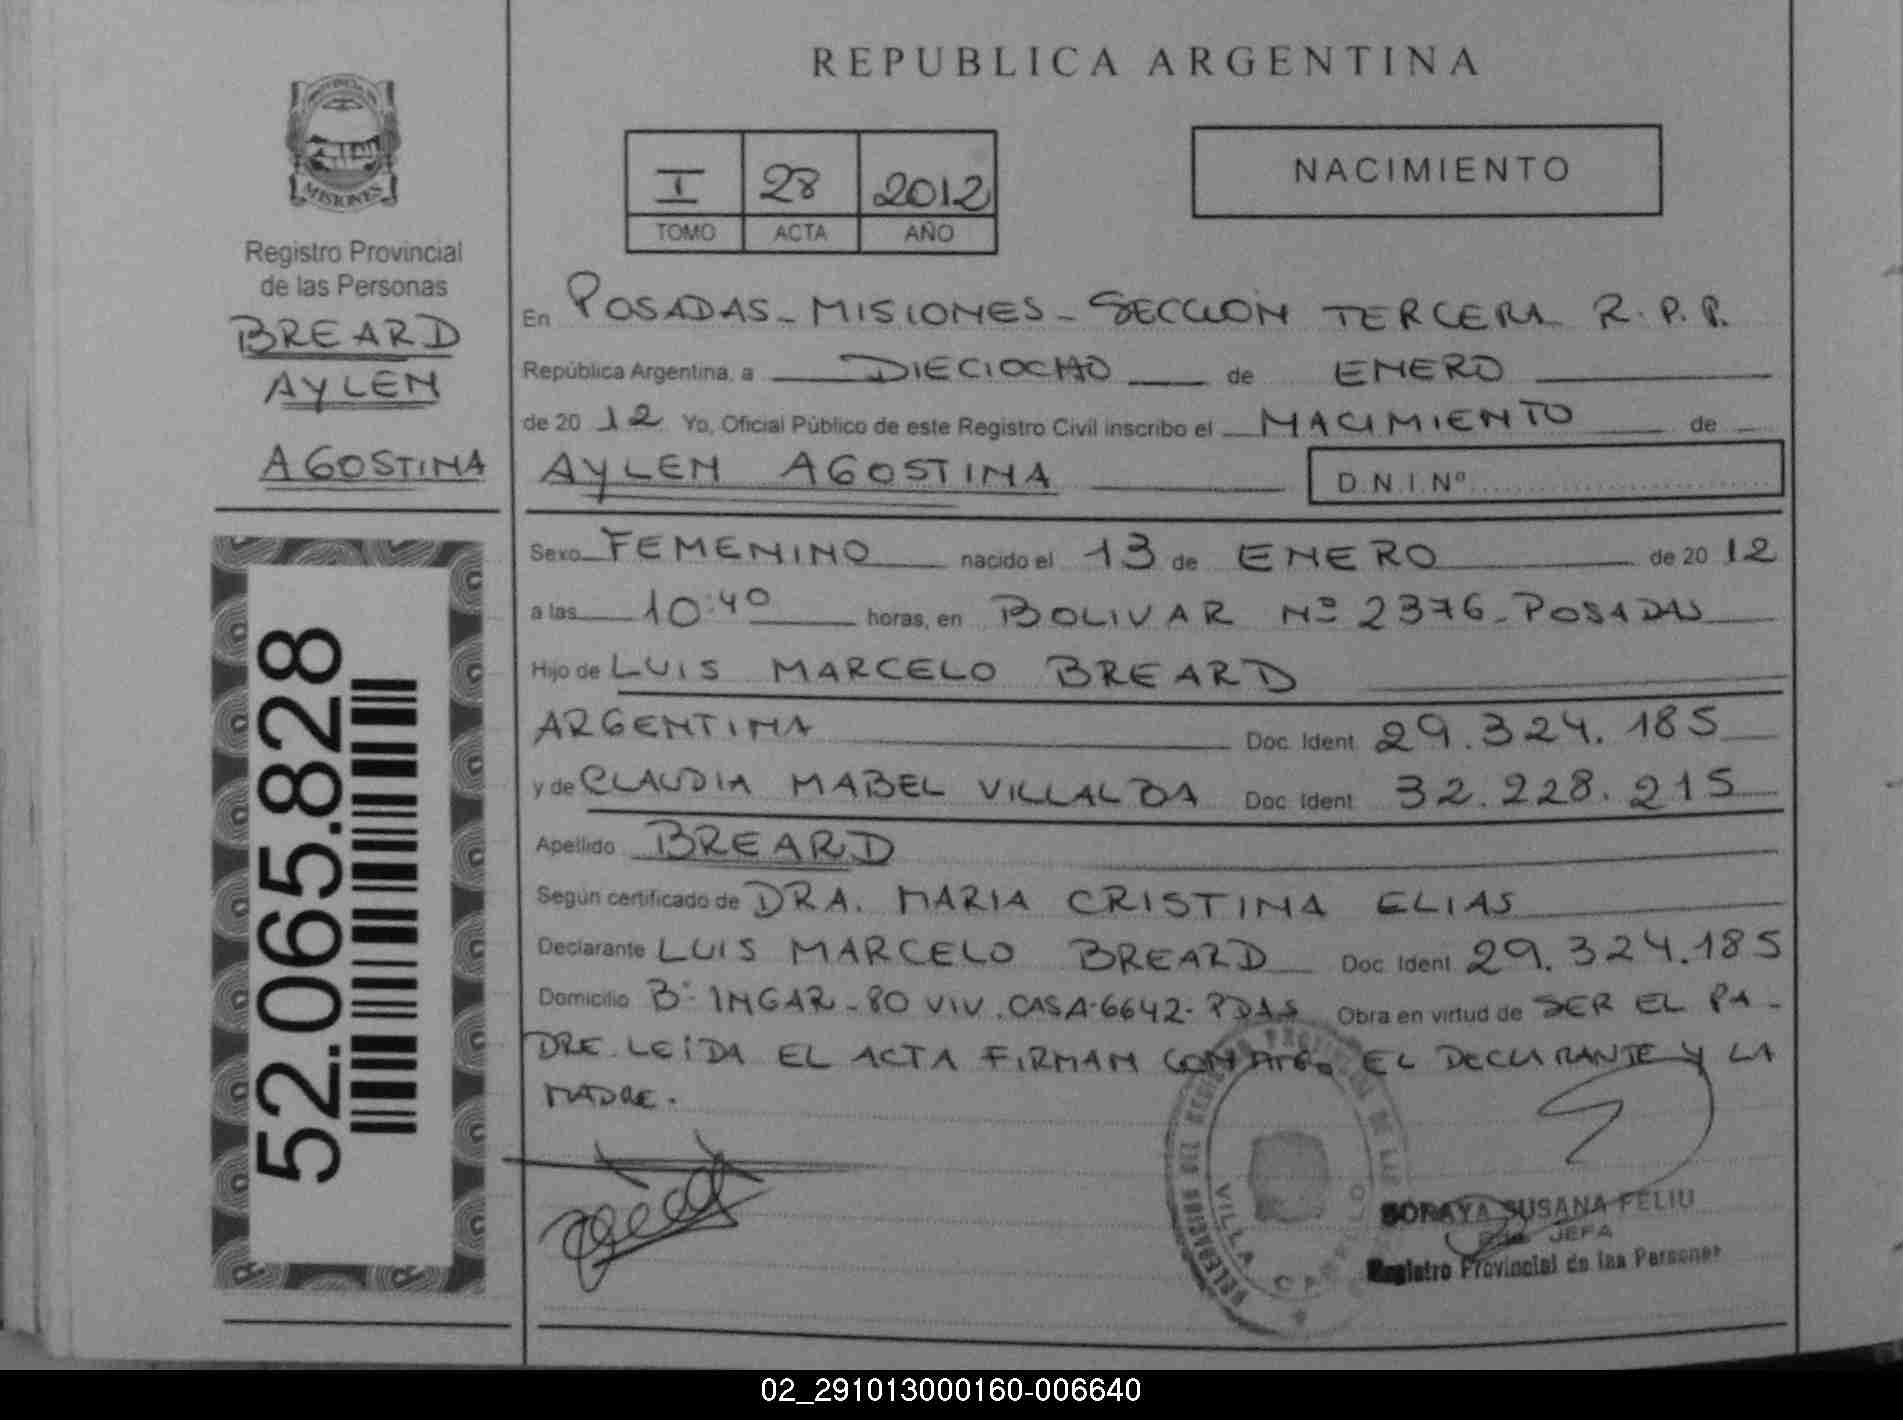 REPUBLICA ARGENTINA
MISIONES
Registro Provincial
de las Personas
BREARD
AYLEN
AGOSTINA
52.065.828
I 28 2012
TOMO ACTA AÑO
NACIMIENTO
En POSADAS - MISIONES - SECCION TERCERA R.P.P.
República Argentina, a DIECIOCHO de ENERO
de 2012 Yo, Oficial Público de este Registro Civil inscribo el NACIMIENTO de
AYLEN AGOSTINA D.N.I.Nº
Sexo FEMENINO nacido el 13 de ENERO de 2012
a las 10:40 horas, en BOLIVAR Nº 2376 - POSADAS
Hijo de LUIS MARCELO BREARD
ARGENTINA Doc. Ident 29.324.185
y de CLAUDIA MABEL VILLALBA Doc. Ident 32.228.215
Apellido BREARD
Según certificado de DRA. MARIA CRISTINA ELIAS
Declarante LUIS MARCELO BREARD Doc. Ident 29.324.185
Domicilio Bº INGAR - 80 VIV. CASA-6642- PDAS Obra en virtud de SER EL PA-
DRE. LEIDA EL ACTA FIRMAN CONMIGO EL DECLARANTE Y LA
MADRE.
VILLA CABELLO
SORAYA SUSANA FELIU
JEFA
Registro Provincial de las Personas
02_291013000160-006640